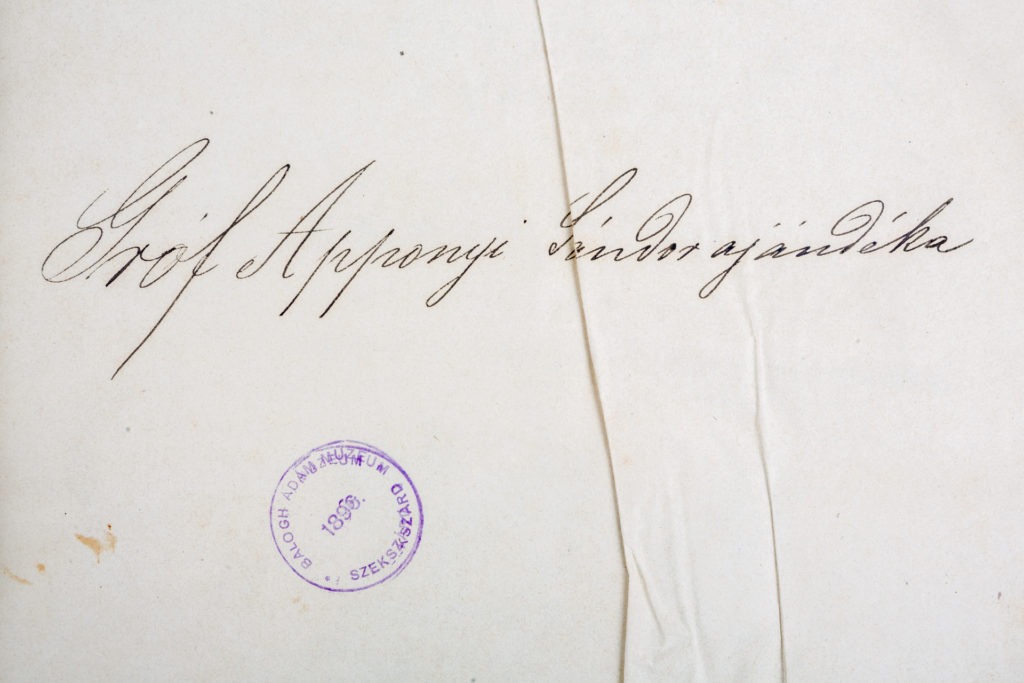 Gróf Apponyi Sándor ajándéka
BALOGH ÁDÁM MÚZEUM
1898.
SZEKSZÁRD